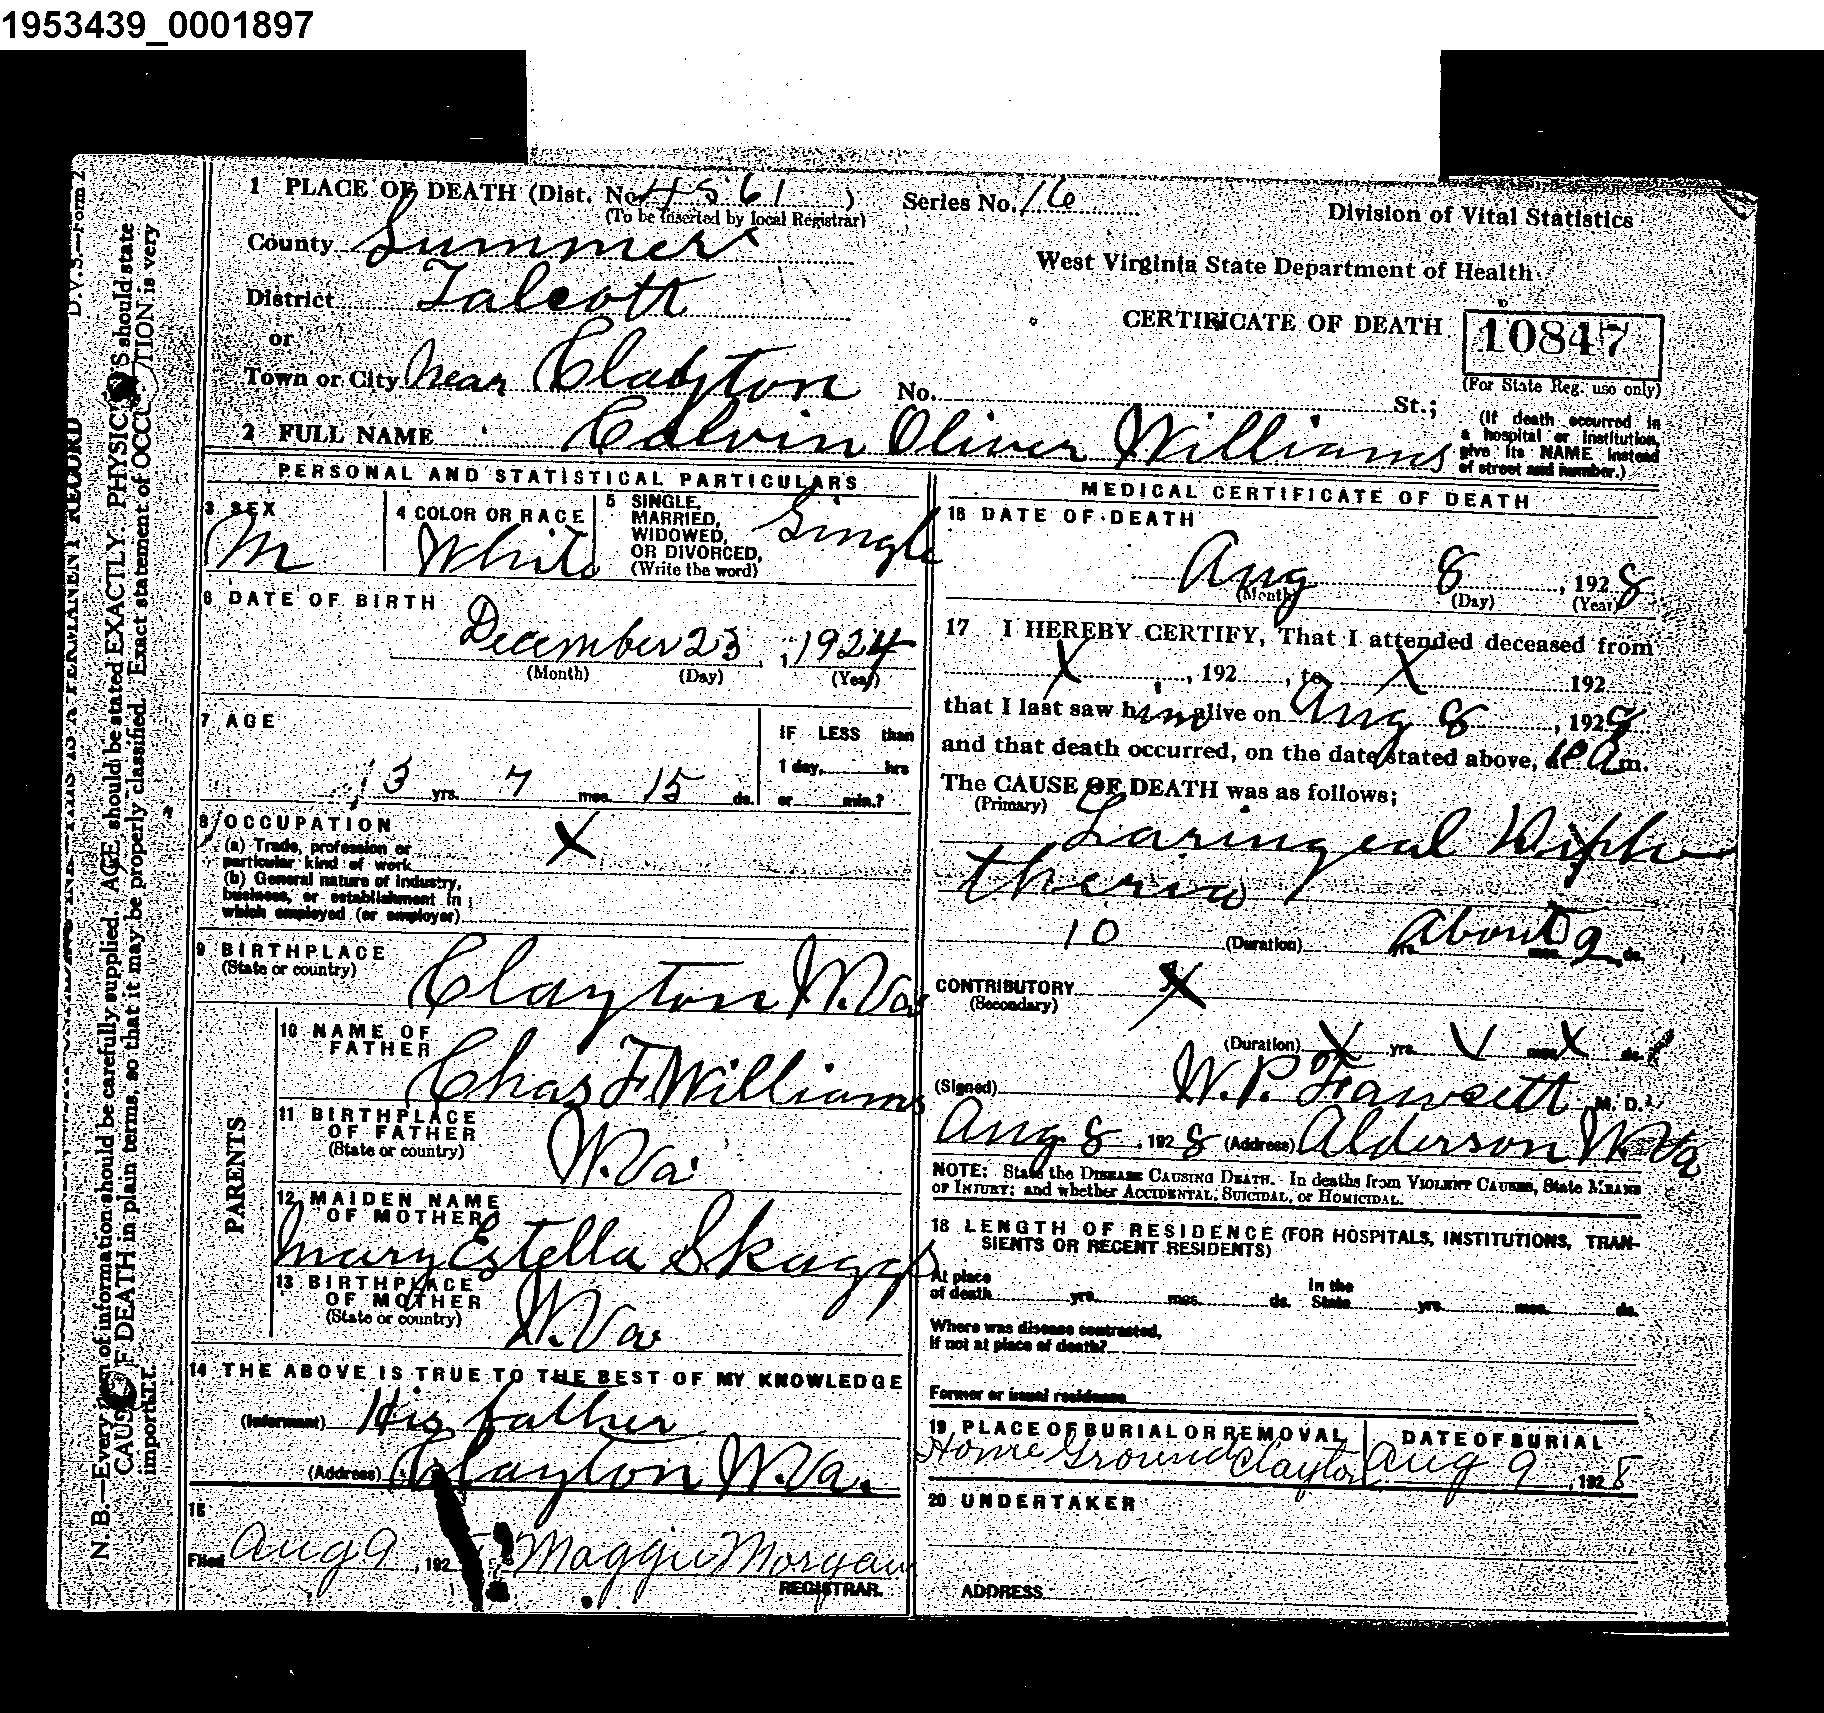 1953439_0001897
1 PLACE OF DEATH (Dist. No. 4561 ) Series No. 16
(To be inserted by local Registrar)
Division of Vital Statistics
County Summers
West Virginia State Department of Health
District Talcott
or
CERTIFICATE OF DEATH 10847
(For State Reg. use only)
Town or City Near Clayton No. St.;
(If death occurred in
a hospital or institution,
give its NAME instead
of street and number.)
2 FULL NAME Calvin Oliver Williams
PERSONAL AND STATISTICAL PARTICULARS
3 SEX
M
4 COLOR OR RACE
White
5 SINGLE,
MARRIED,
WIDOWED,
OR DIVORCED,
(Write the word)
Single
6 DATE OF BIRTH
December 23, 1924
(Month) (Day) (Year)
7 AGE
3 yrs. 7 mos. 15 ds.
IF LESS than
1 day, hrs
or min.?
8 OCCUPATION
(a) Trade, profession or
particular kind of work
X
(b) General nature of Industry,
business, or establishment in
which employed (or employer)
9 BIRTHPLACE
(State or country)
Clayton W.Va
PARENTS
10 NAME OF
FATHER
Chas F Williams
11 BIRTHPLACE
OF FATHER
(State or country)
W.Va
12 MAIDEN NAME
OF MOTHER
Mary Estella Skaggs
13 BIRTHPLACE
OF MOTHER
(State or country)
W.Va
14 THE ABOVE IS TRUE TO THE BEST OF MY KNOWLEDGE
(Informant) His father
(Address) Clayton W.Va.
15
Filed Aug 9, 192 Maggie Morgan
REGISTRAR.
MEDICAL CERTIFICATE OF DEATH
16 DATE OF DEATH
Aug 8, 1928
(Month) (Day) (Year)
17 I HEREBY CERTIFY, That I attended deceased from
X, 192 , to X 192
that I last saw him alive on Aug 8, 1928
and that death occurred, on the date stated above, at m.
The CAUSE OF DEATH was as follows;
(Primary)
Laringeal Diph
theria
10 (Duration) yrs. About mos. 2 ds.
CONTRIBUTORY X
(Secondary)
(Duration) X yrs. mos. X ds.
(Signed) W.P. Fawcett M. D.
Aug 8, 1928 (Address) Alderson W.Va
NOTE: State the DISEASE CAUSING DEATH. In deaths from VIOLENT CAUSES, State MEANS
OF INJURY; and whether ACCIDENTAL, SUICIDAL, or HOMICIDAL.
18 LENGTH OF RESIDENCE (FOR HOSPITALS, INSTITUTIONS, TRAN-
SIENTS OR RECENT RESIDENTS)
At place
of death yrs. mos. ds.
In the
State yrs. mos. ds.
Where was disease contracted,
if not at place of death?
Former or usual residence
19 PLACE OF BURIAL OR REMOVAL
Home Ground Clayton
DATE OF BURIAL
Aug 9, 1928
20 UNDERTAKER
ADDRESS
D.V.S.—Form 2
PERMANENT RECORD
N. B.—Every item of information should be carefully supplied. AGE should be stated EXACTLY. PHYSICIANS should state
CAUSE OF DEATH in plain terms, so that it may be properly classified. Exact statement of OCCUPATION is very
important.